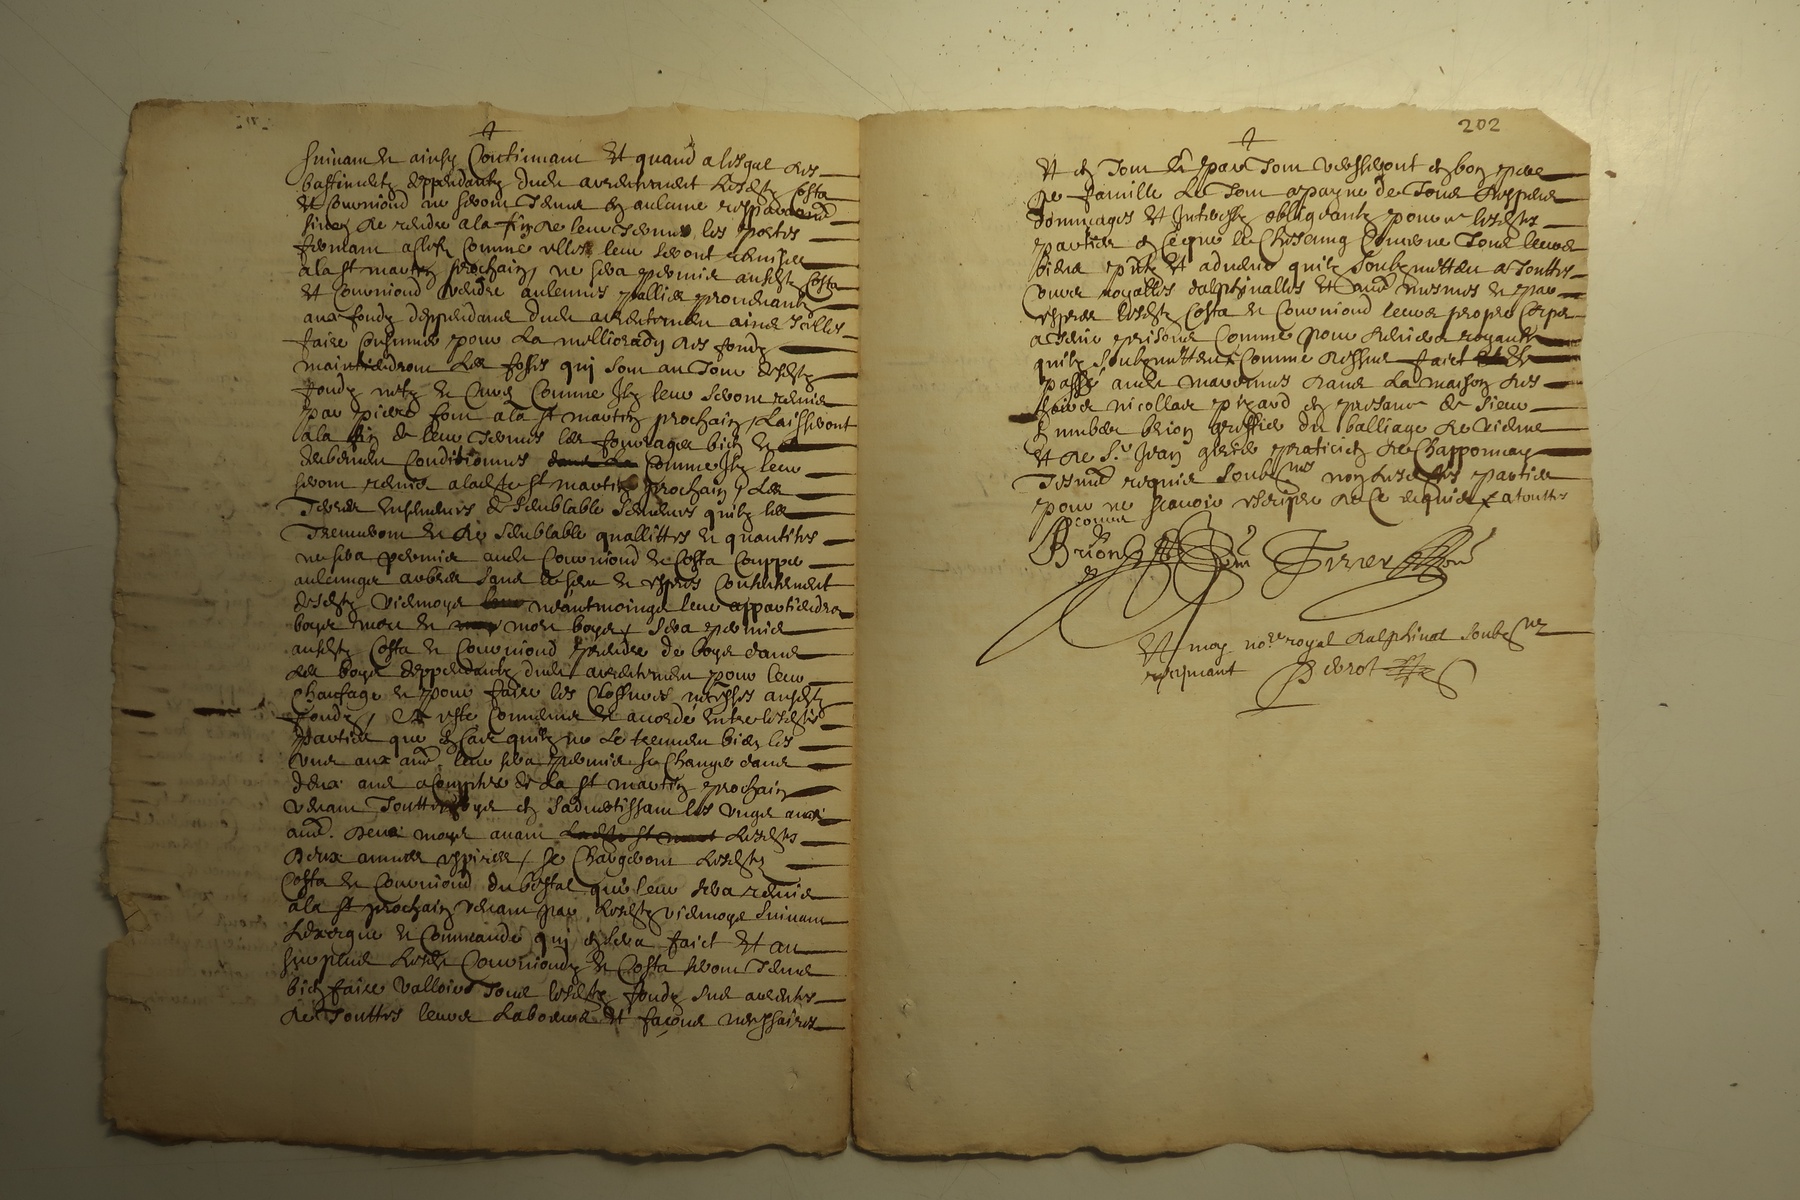 suivant et ainsy continuant Et quand a lesgal des
bastimentz deppendantz dudt arrentement lesdtz Costa
et Couvriond ne seront tenus en aulcune reparaond
sinon de rendre a la fin de leur termes les portes
fermant a clefz comme elles leur seront remises
a la st martin prochain, ne sera permis ausdtz Costa
et Couvriond vendre aulcunes pallies provenantz
aux fondz deppendant dudt arrentement ains icelles
faire consumer pour la melliorãon des fondz
maintiendront les fosses qui sont au tour desdtz
fondz netz et cures comme Ilz leur seront remis
par pierre font a la st martin prochain, Laisseront
a la fin de leur termes les fourrages bien et
deubement conditionnes comme Ilz leur
seront remis a ladte st martin prochain, Les
terres ensemences de semblable semences quilz les
tiennent et de semblable quallittes et quantites
ne sera permis audt Couvriond et Costa coupper
aulcungz arbres sans le sceu et expres consentement
desdtz viemoys neantmoingz leur appartiendra
boys mort et mort boys, sera permis
ausdtz Costa et Couvriond prendre de boys dans
les boys deppendantz dudt arrentement pour leur
chaufage et pour faire les closures necess.es ausdtz
fondz, A este convenu et accordé entre lesdtes
parties que en cas quilz ne se treuvent bien les
ungs aux aues leur sera permis se changer dans
deux ans a compter de la st martin prochain
venant touttesfoys en sadvertissant les ungz aux
aues deux moys avant lesdtes
deux annees expirees, se chargeront lesdtz
Costa et Couvriond du bestal qui leur sera remis
a la st prochain venant par lesdtz viemoys suivant
Lexergue et commande qui en sera faict Et au
surplus lesdtz Couvriondz et Costa seront tenus
bien faire valloir tous lesdtz fondz sus arentes
de touttes leurs laboeurs et façons necessaires
202
Et en tout et par tout verseront en bon pere
de famille Le tout a payne de tous despens
dommages Et Interestz obligeantz pour ce lesdtes
parties en ce que les chascung concerne tous leurs
biens pntz et advenir quilz soubzmettent a touttes
cours royalles dalphinalles Et aues mesmes et par
expres lesdtz Costa et Couvriond leurs propre corps
a tenir prisons comme pour deniers royaux
quilz soubzmettent comme dessus faict et
passé audt marennes dans la maison des
hoirs nicollas pizard en presance de sieur
humbert brion greffier du balliage de vienne
Et de Sr Jean praticien de Chapponnay
tesmns requis soubznes non lesdtes parties
pour ne scavoir escripre de ce requis, a touttes
Brion
Et moy nore royal dalphinal soubzne
recepvant